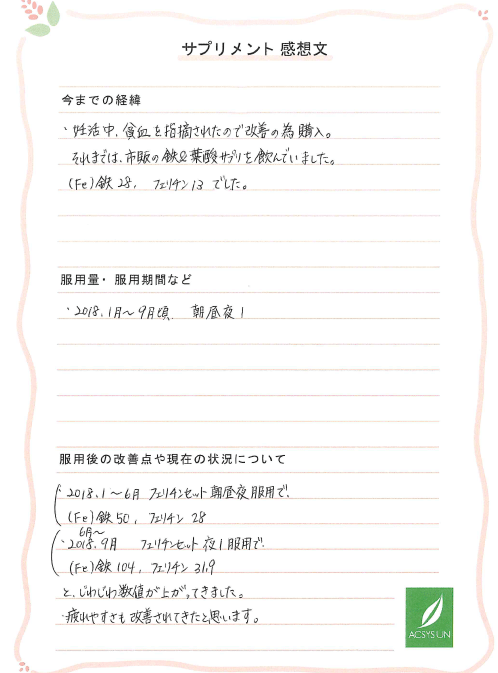 サプリメント 感想文
今までの経緯
・妊活中、貧血を指摘されたので改善の為購入。
それまでは、市販の鉄&葉酸サプリを飲んでいました。
(Fe)鉄 28, フェリチン 13 でした。
服用量・服用期間など
・2018.1月〜9月頃. 朝昼夜 1
服用後の改善点や現在の状況について
・2018.1〜6月 フェリチンセット 朝昼夜服用で、
(Fe)鉄 50, フェリチン 28
6月〜
・2018.9月 フェリチンセット 夜1服用で、
(Fe)鉄 104, フェリチン 31.9
と、じわじわ数値が上がってきました。
・疲れやすさも改善されてきたと思います。
ACSYSUN